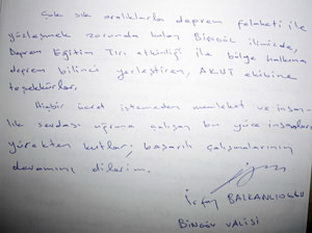 Çok sık aralıklarla deprem felaketi ile
yüzleşmek zorunda kalan BİNGÖL ilimizde,
Deprem Eğitim Tırı etkinliği ile bölge halkına
deprem bilinci yerleştiren, AKUT ekibine
teşekkürler.
Hiçbir ücret istemeden memleket ve insan-
lık sevdası uğruna çalışan bu yüce insanları
yürekten kutlar; başarılı çalışmalarının
devamını dilerim.
İrfan BALKANLIOĞLU
BİNGÖL VALİSİ